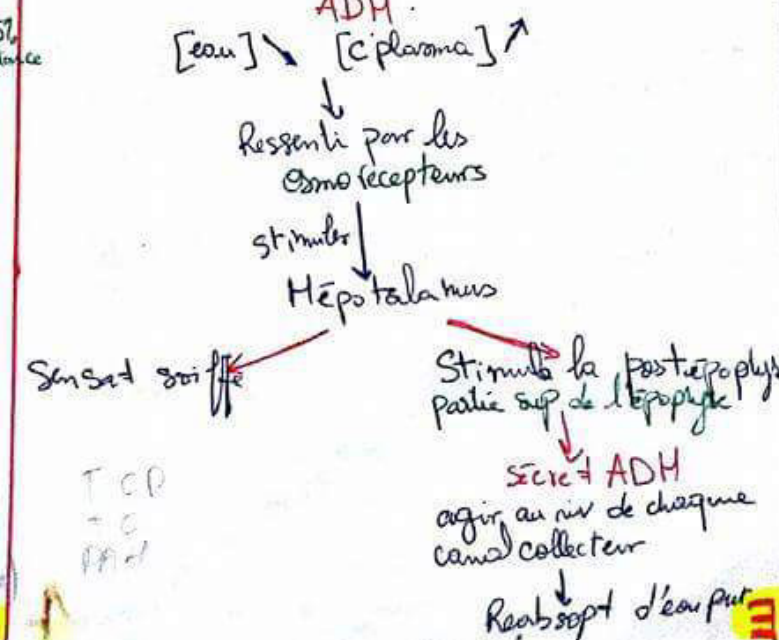 ADM.
[eau] ↘ [c° plasma] ↗
↓
Ressenti par les
osmorécepteurs
stimuler ↓
Hépotalamus
Sensat soiffe
Stimule la postépophys
partie sup de l'épophyse
↓
sécret ADM
agir au niv de chaque
canal collecteur
↓
Reabsopt d'eau pur
T C D